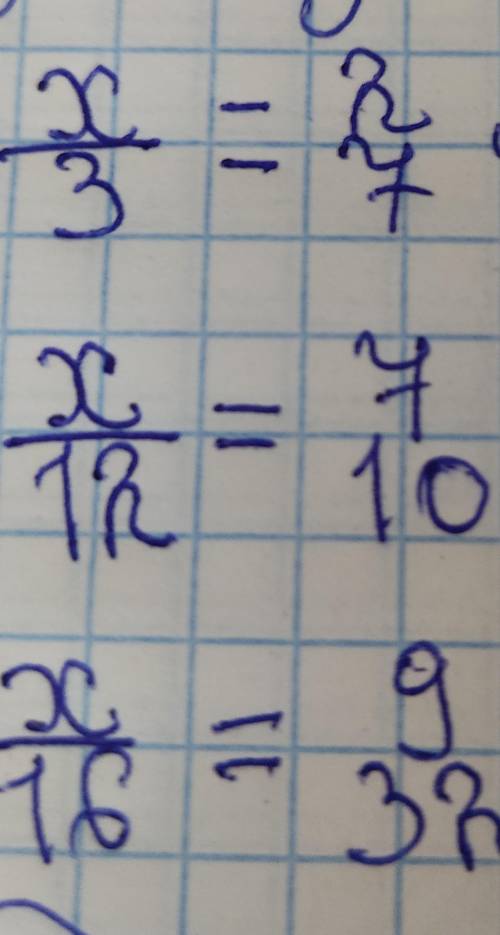 x/3 = 2/7
x/12 = 7/10
x/16 = 9/32